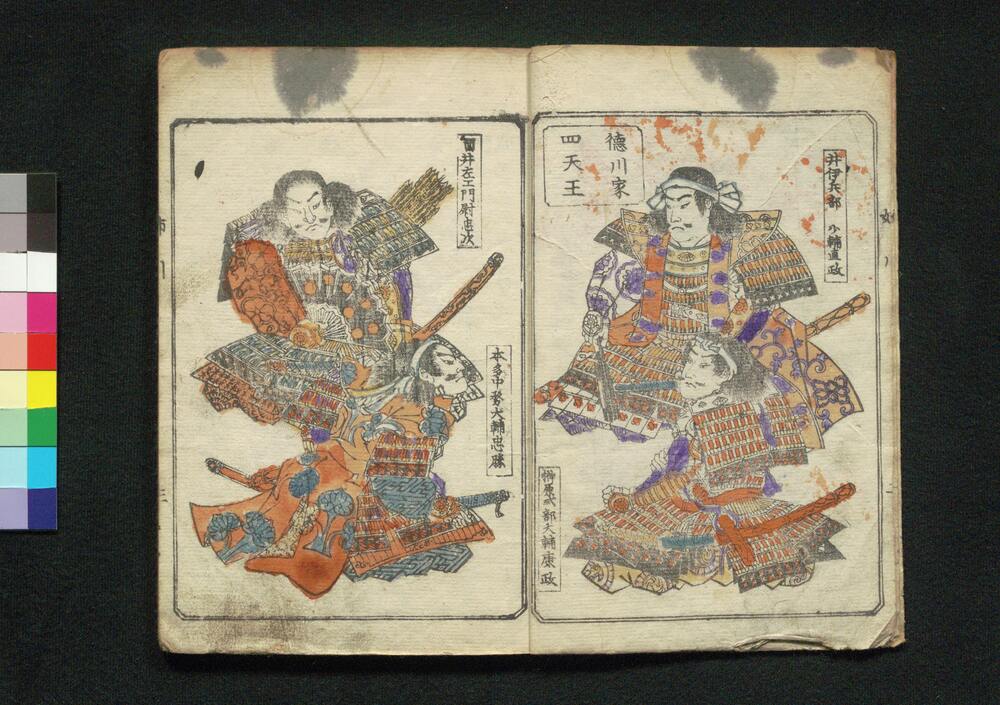 徳川家
四天王
井伊兵部少輔直政
榊原式部大輔康政
酒井左エ門尉忠次
本多中務大輔忠勝